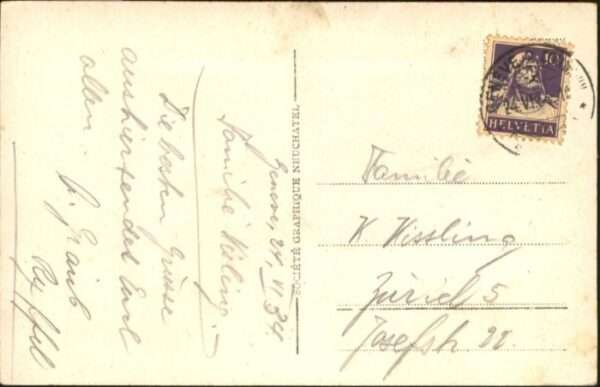 Genève, 24. VI. 34.
Familie Kissling.
Die besten Grüsse
aus hier sendet Euch
allen.
Ryffel
SOCIÉTÉ GRAPHIQUE NEUCHATEL
10
HELVETIA
GENÈVE
Familie
K. Kissling
Zürich 5
Josefstr. 22.